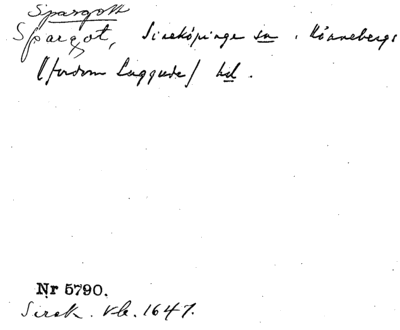 Spargott
Spargot, Sireköpinge sn. Rönnebergs
(fordom Luggude) hd.
Nr 5790.
Sirek. vb. 1647.